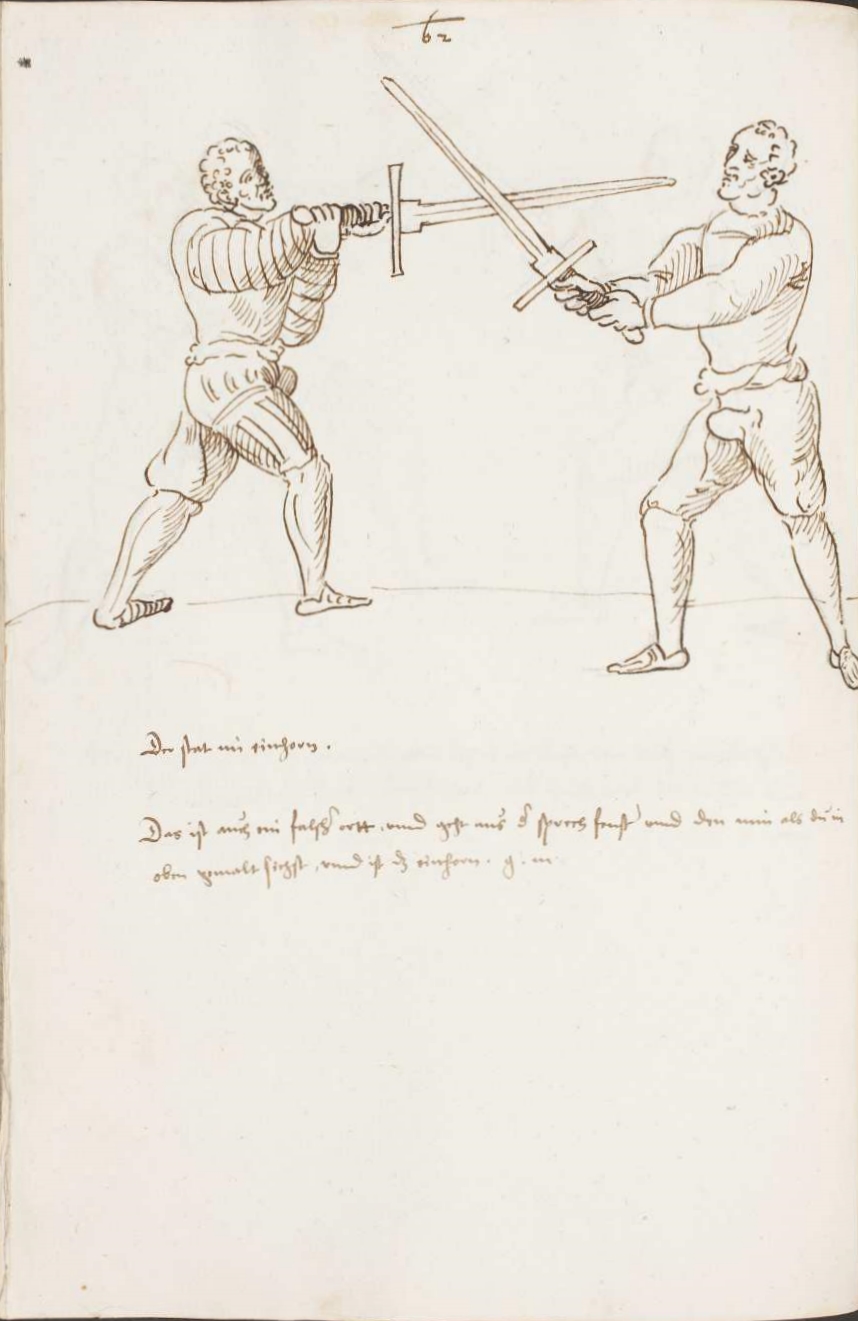 62
Der stat im einhorn .
Das ist auch ein falsch ortt , vnnd geht aus d sprech fenst vnnd den nim als du in
oben gemalt sichst , vnnd ist dz einhorn . g . m